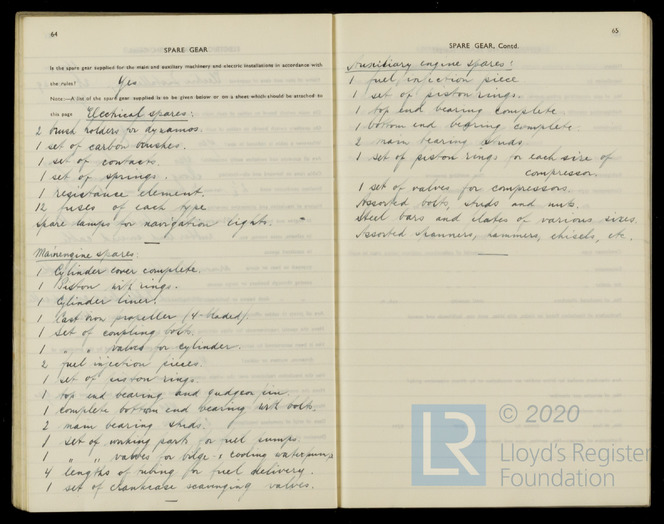 64
SPARE GEAR
Is the spare gear supplied for the main and auxiliary machinery and electric installations in accordance with
the rules? Yes
Note:—A list of the spare gear supplied is to be given below or on a sheet which should be attached to
this page Electrical spares:
2 brush holders for dynamos.
1 set of carbon brushes.
1 set of contacts.
1 set of springs.
1 resistance element.
12 fuses of each type
Spare lamps for navigation lights.
Mainengine spares:
1 Cylinder cover complete.
1 Piston with rings.
1 Cylinder liner.
1 Cast iron propeller (4-bladed)
1 set of coupling bolts.
1 " " valves for cylinder.
2 fuel injection pieces.
1 set of piston rings.
1 top end bearing and gudgeon pin.
1 complete bottom end bearing with bolts.
2 main bearing studs.
1 set of working parts for fuel pumps.
1 " " valves for bilge & cooling water pump
4 lengths of tubing for fuel delivery.
1 set of crankcase scavenging valves.
65
SPARE GEAR, Contd.
Auxiliary engine spares:
1 fuel injection piece
1 set of piston rings.
1 top end bearing complete
1 bottom end bearing complete
2 main bearing studs
1 set of piston rings for each size of
compressor.
1 set of valves for compressors.
Assorted bolts, studs and nuts.
Steel bars and plates of various sizes.
Assorted spanners, hammers, chisels, etc.
LR
© 2020
Lloyd's Register
Foundation